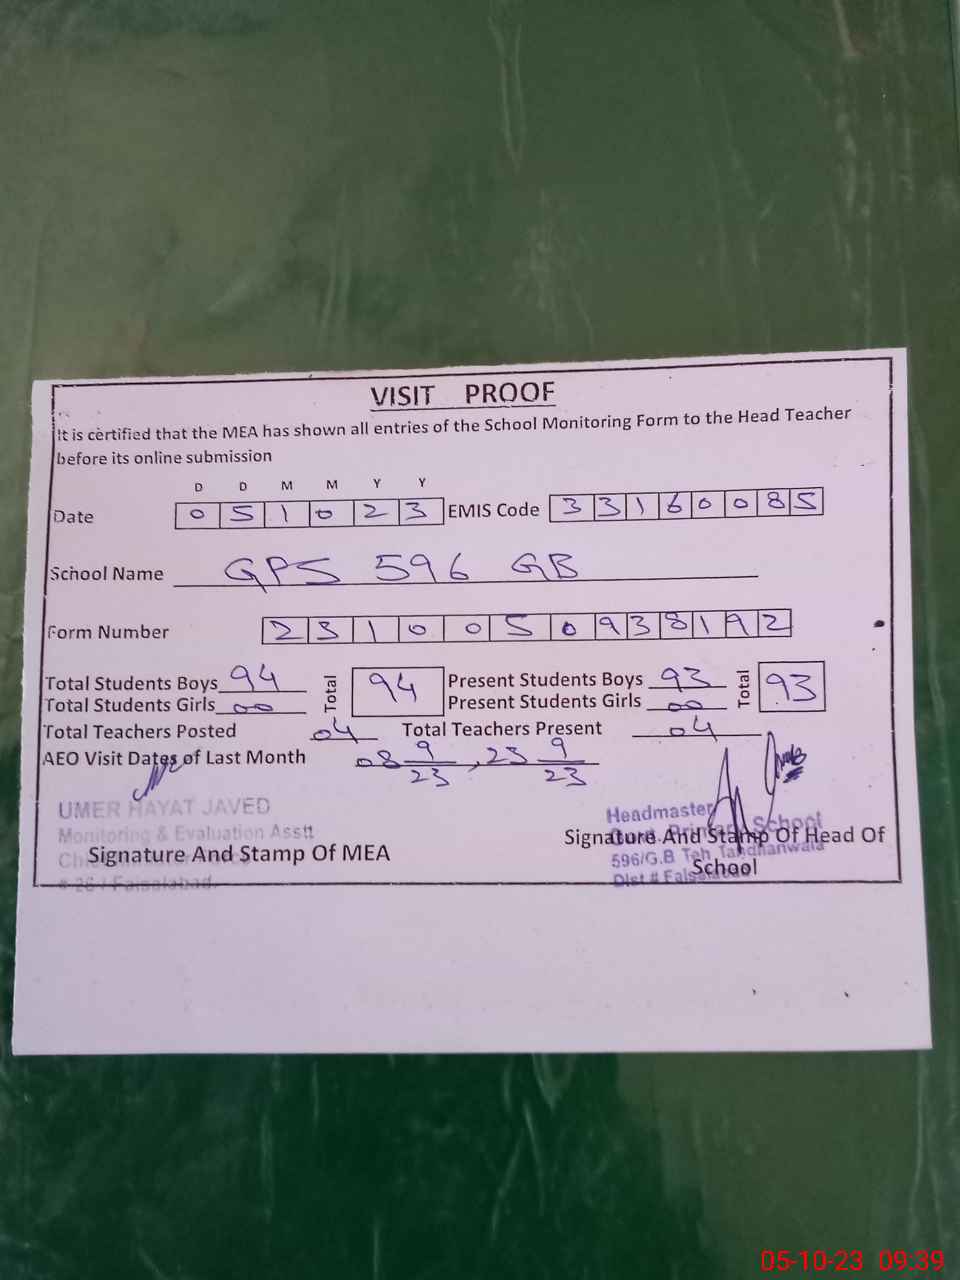 VISIT PROOF
It is certified that the MEA has shown all entries of the School Monitoring Form to the Head Teacher
before its online submission
D D M M Y Y
Date 0 5 1 0 2 3 EMIS Code 3 3 1 6 0 0 8 5
School Name GPS 596 GB
Form Number 2 3 1 0 0 5 0 9 3 8 1 9 2
Total Students Boys 94 Total 94 Present Students Boys 93 Total 93
Total Students Girls 00 Present Students Girls 00
Total Teachers Posted 04 Total Teachers Present 04
AEO Visit Dates of Last Month 08 9/23, 23 9/23
UMER HAYAT JAVED
Monitoring & Evaluation Asstt
Signature And Stamp Of MEA
# 26 / Faisalabad.
Headmaster
Govt. Primary School
Signature And Stamp Of Head Of
596/G.B Teh Tandlianwala
School
Dist # Faisalabad
05-10-23 09:39